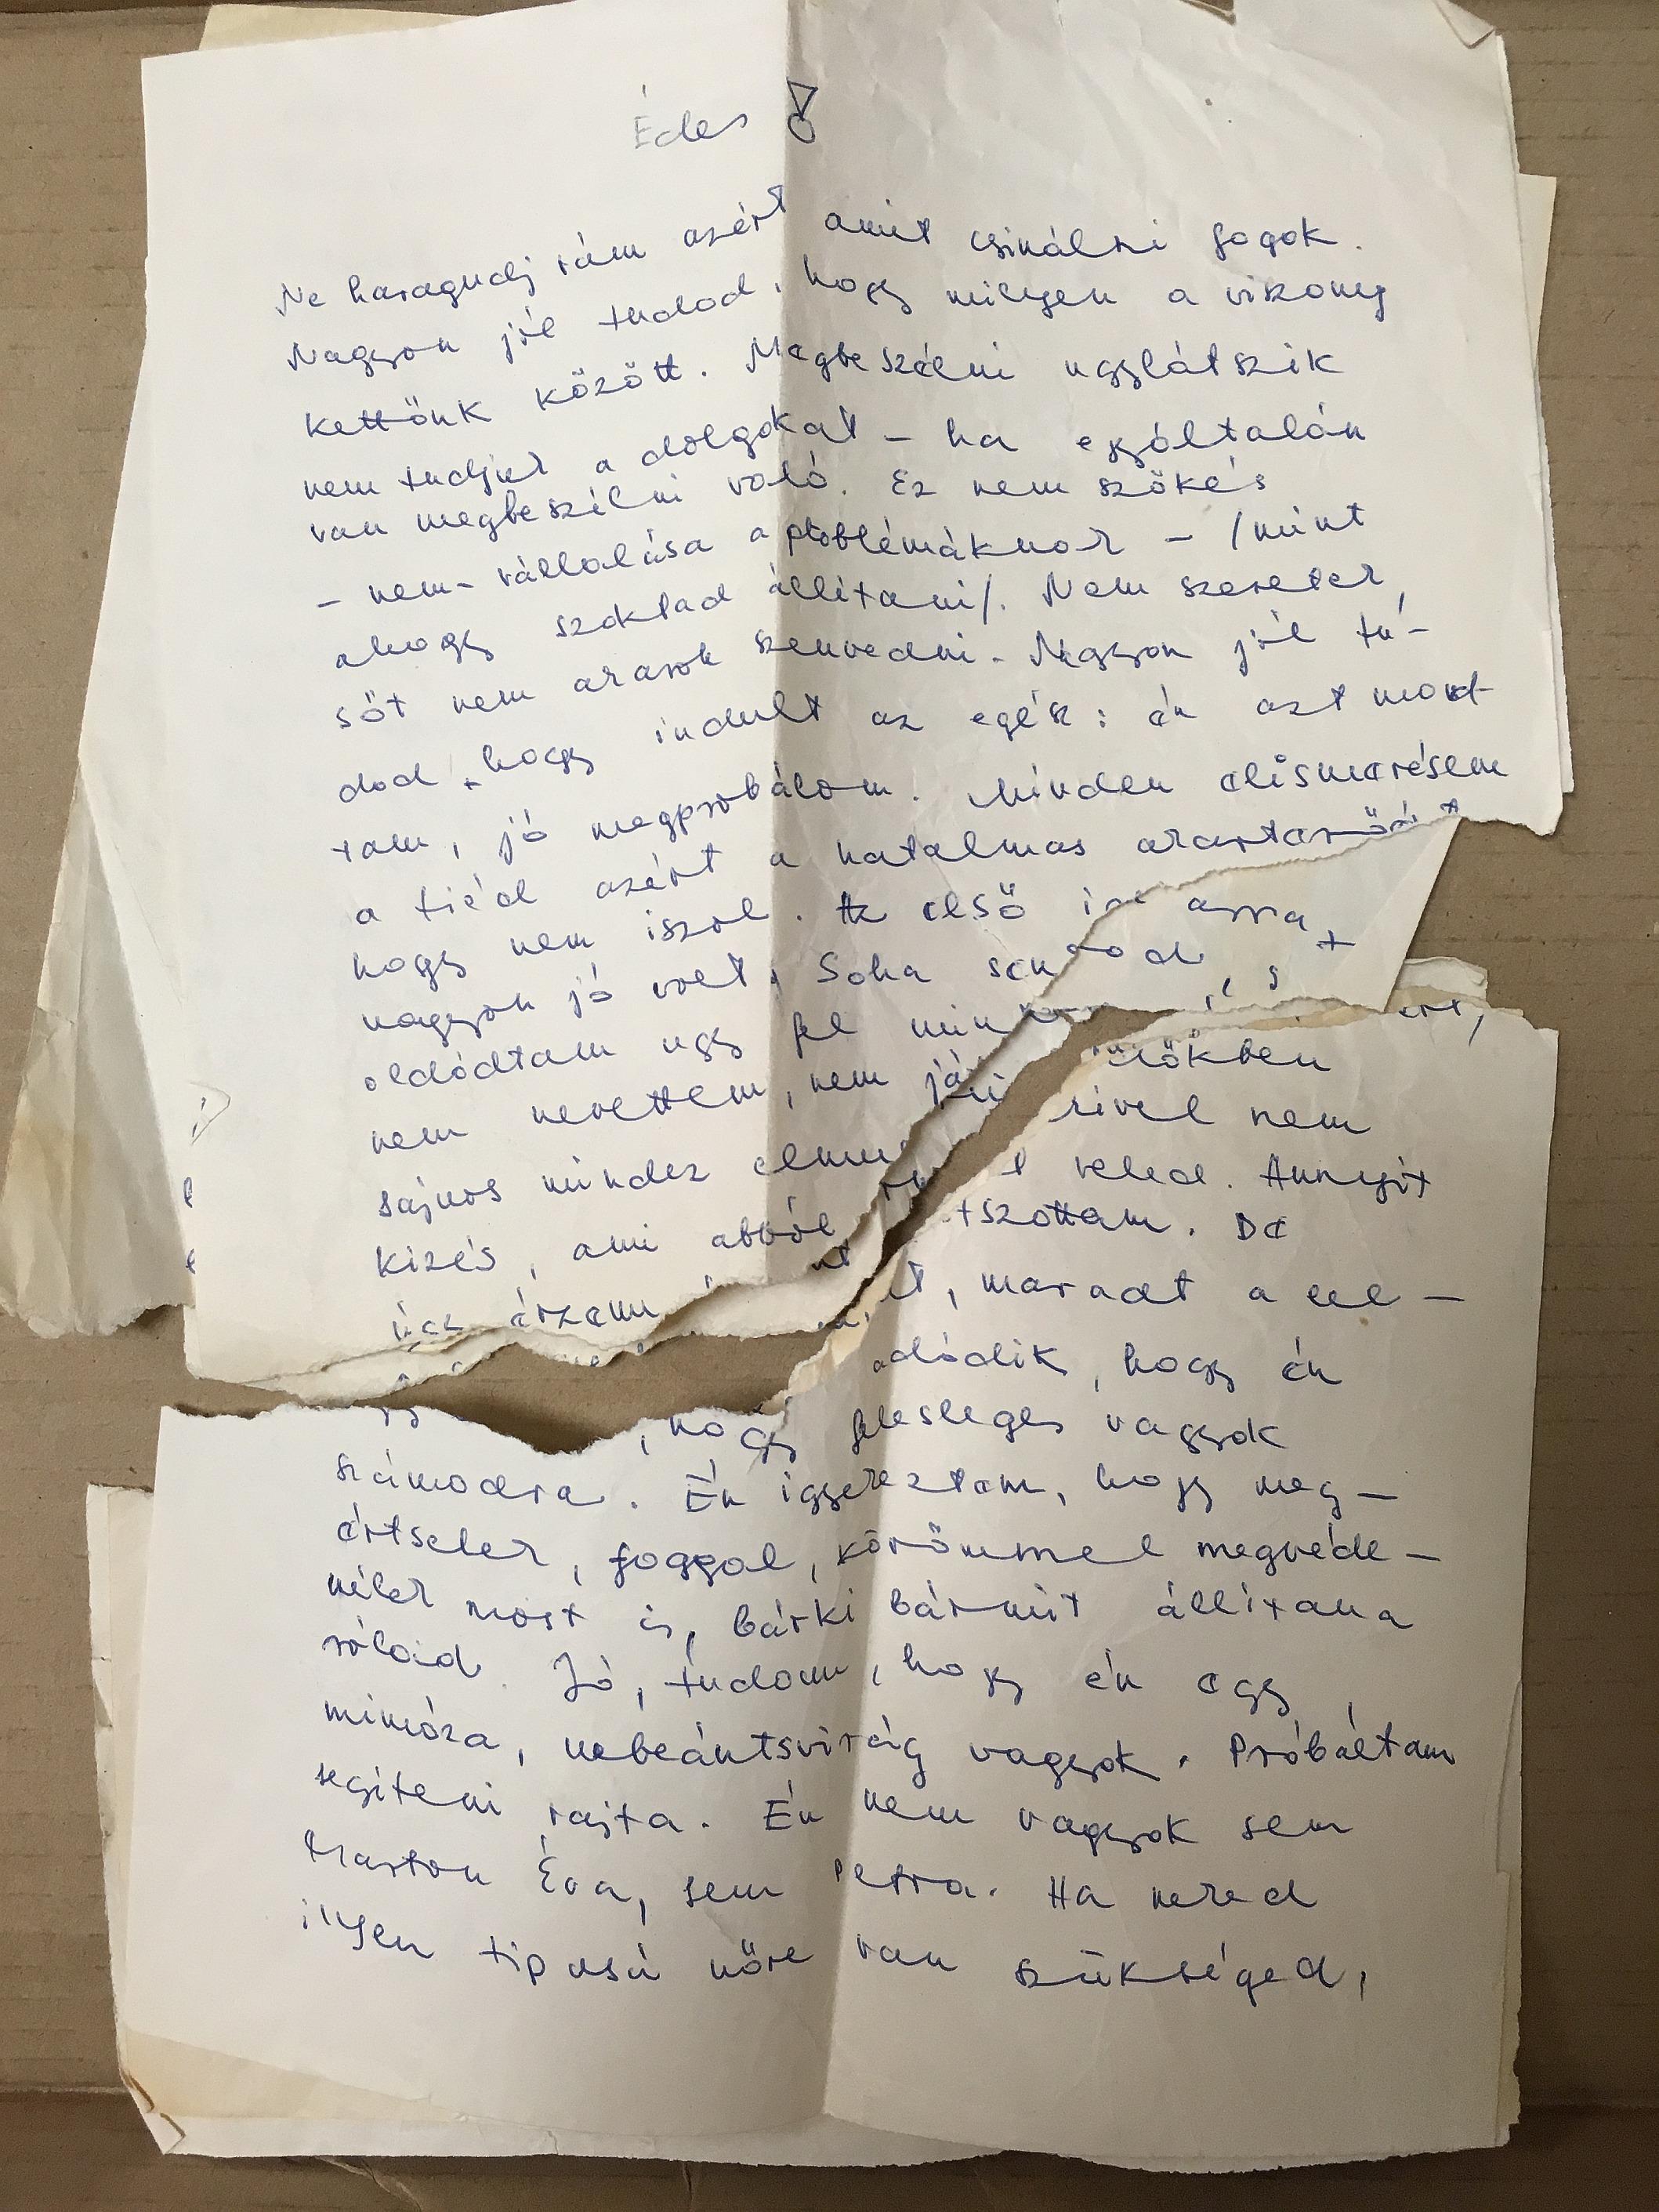 Édes !
Ne haragudj rám azért amit csinálni fogok.
Nagyon jól tudod, hogy milyen a viszony
kettőnk között. Megbeszélni ugylátszik
nem tudjuk a dolgokat – ha egyáltalán
van megbeszélni való. Ez nem szökés
– nem – vállalása a problémáknak – /mint
ahogy szoktad állítani/. Nem szeretek,
sőt nem akarok szenvedni. Nagyon jól tu-
dod, hogy indult az egész: én azt mond-
tam, jó megprobálom. Minden elismerésem
a tiéd azért a hatalmas akaraterőért
hogy nem iszol. Az első arra
nagyon jó volt. Soha
oldódtam ugy fel
nem nevettem, nem
sajnos mindez
kizés, ami abból
érzem
ert,
nőkben
kivel nem
veled. Annyit
tszottam. De
maradt a lel-
adódik, hogy én
, hogy felesleges vagyok
számodra. Én igyekeztem, hogy meg-
értselek, foggal, körömmel megvéde-
nélek most is, bárki bármit állítana
rólad. Jó, tudom, hogy én egy
mimóza, nebeántsvirág vagyok. Próbáltam
segíteni rajta. Én nem vagyok sem
Marton Éva, sem Petra. Ha neked
ilyen tipusú nőre van szükséged,